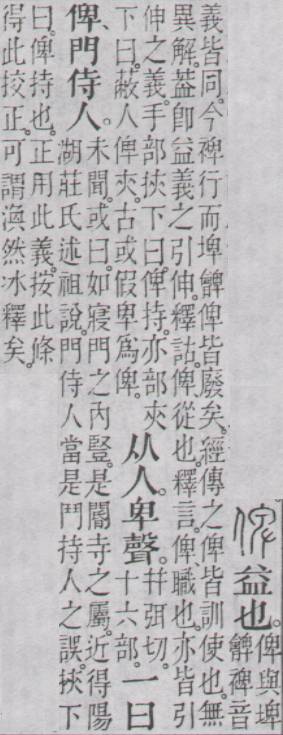 俾益也。俾與埤
朇裨音
義皆同。今裨行而埤朇俾皆廢矣。經傳之俾皆訓使也。無
異解。葢卽益義之引伸。釋詁。俾從也。釋言。俾、職也。亦皆引
伸之義。手部挾下曰。俾持。亦部夾
下曰。蔽人俾夾。古或假卑爲俾。
从人。卑聲。幷弭切。
十六部。一曰
俾、門侍人。未聞。或曰。如寢門之內豎。是閽寺之屬。近得陽
湖莊氏述祖說。門侍人當是鬥持人之誤。挾下
曰。俾持也。正用此義。按此條
得此挍正。可謂渙然冰釋矣。